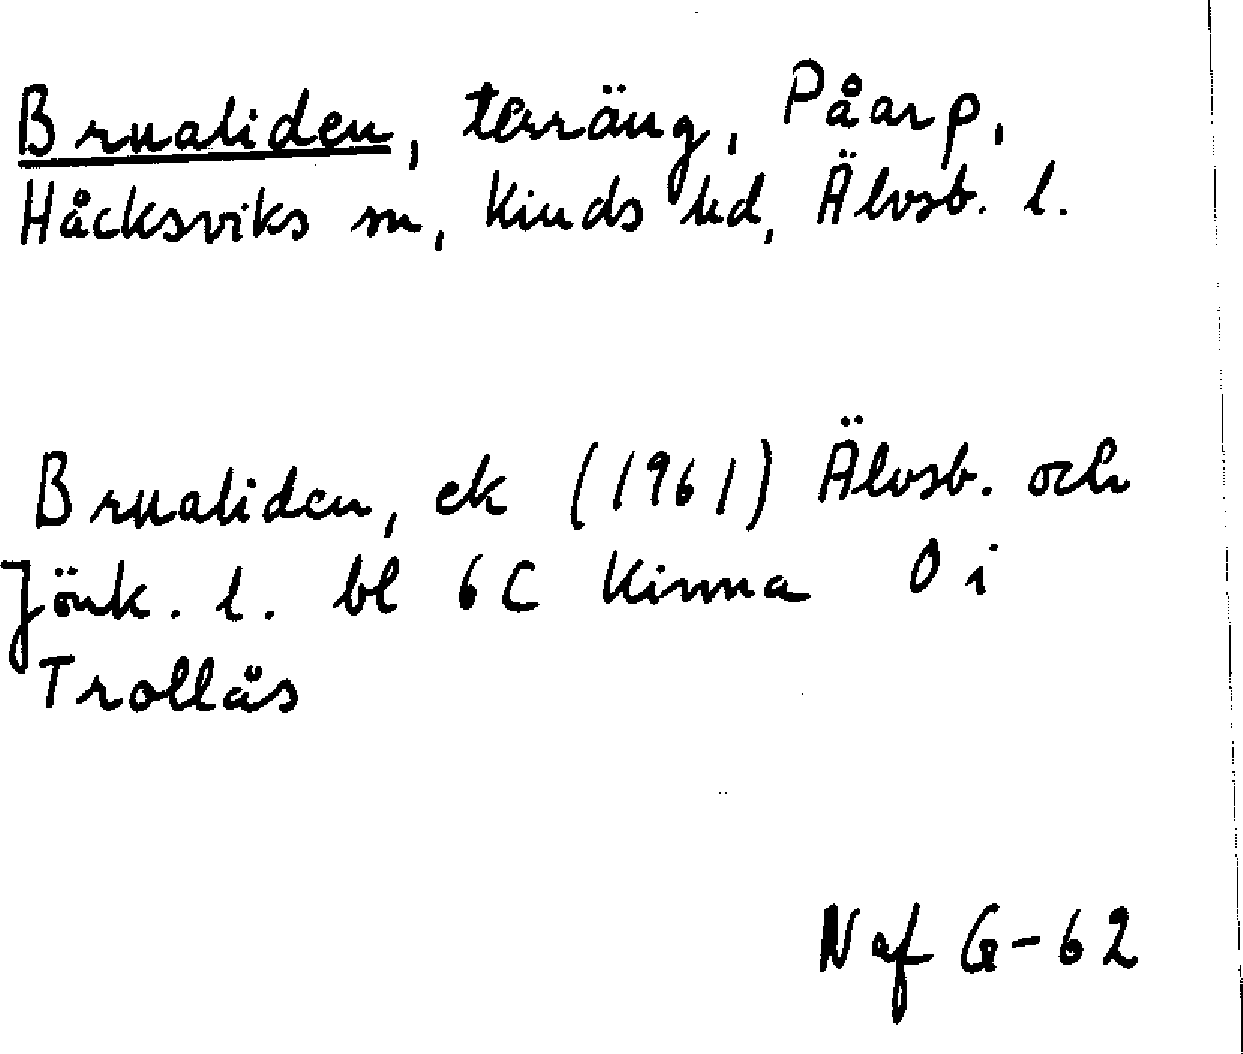 Brualiden, terräng, Påarp,
Håcksviks sn, Kinds hd, Älvsb. l.
Brualiden, ek (1961) Älvsb. och
Jönk. l. bl 6C Kinna O i
Trollås
Naf G-62